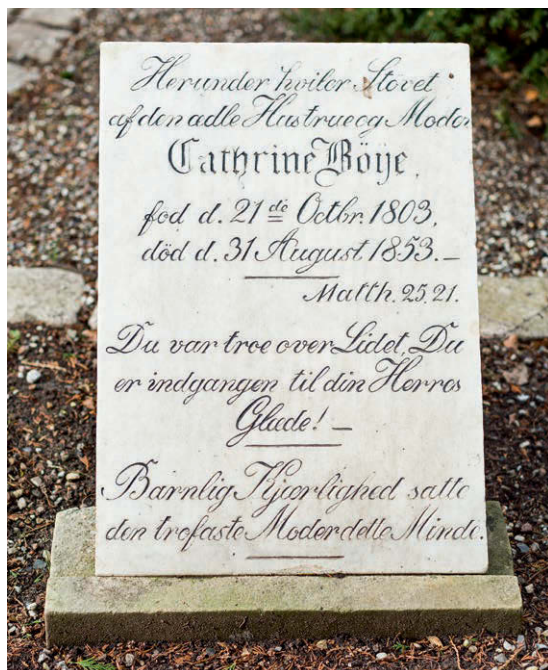 Herunder hviler Støvet
af den ædle Hustrue og Moder
Cathrine Böije,
fød d. 21 de Octbr. 1803,
död d. 31 August 1853.—
Matth. 25. 21.
Du var troe over Lidet, Du
er indgangen til din Herres
Glæde! —
Barnlig Kjærlighed satte
den trofaste Moder dette Minde.